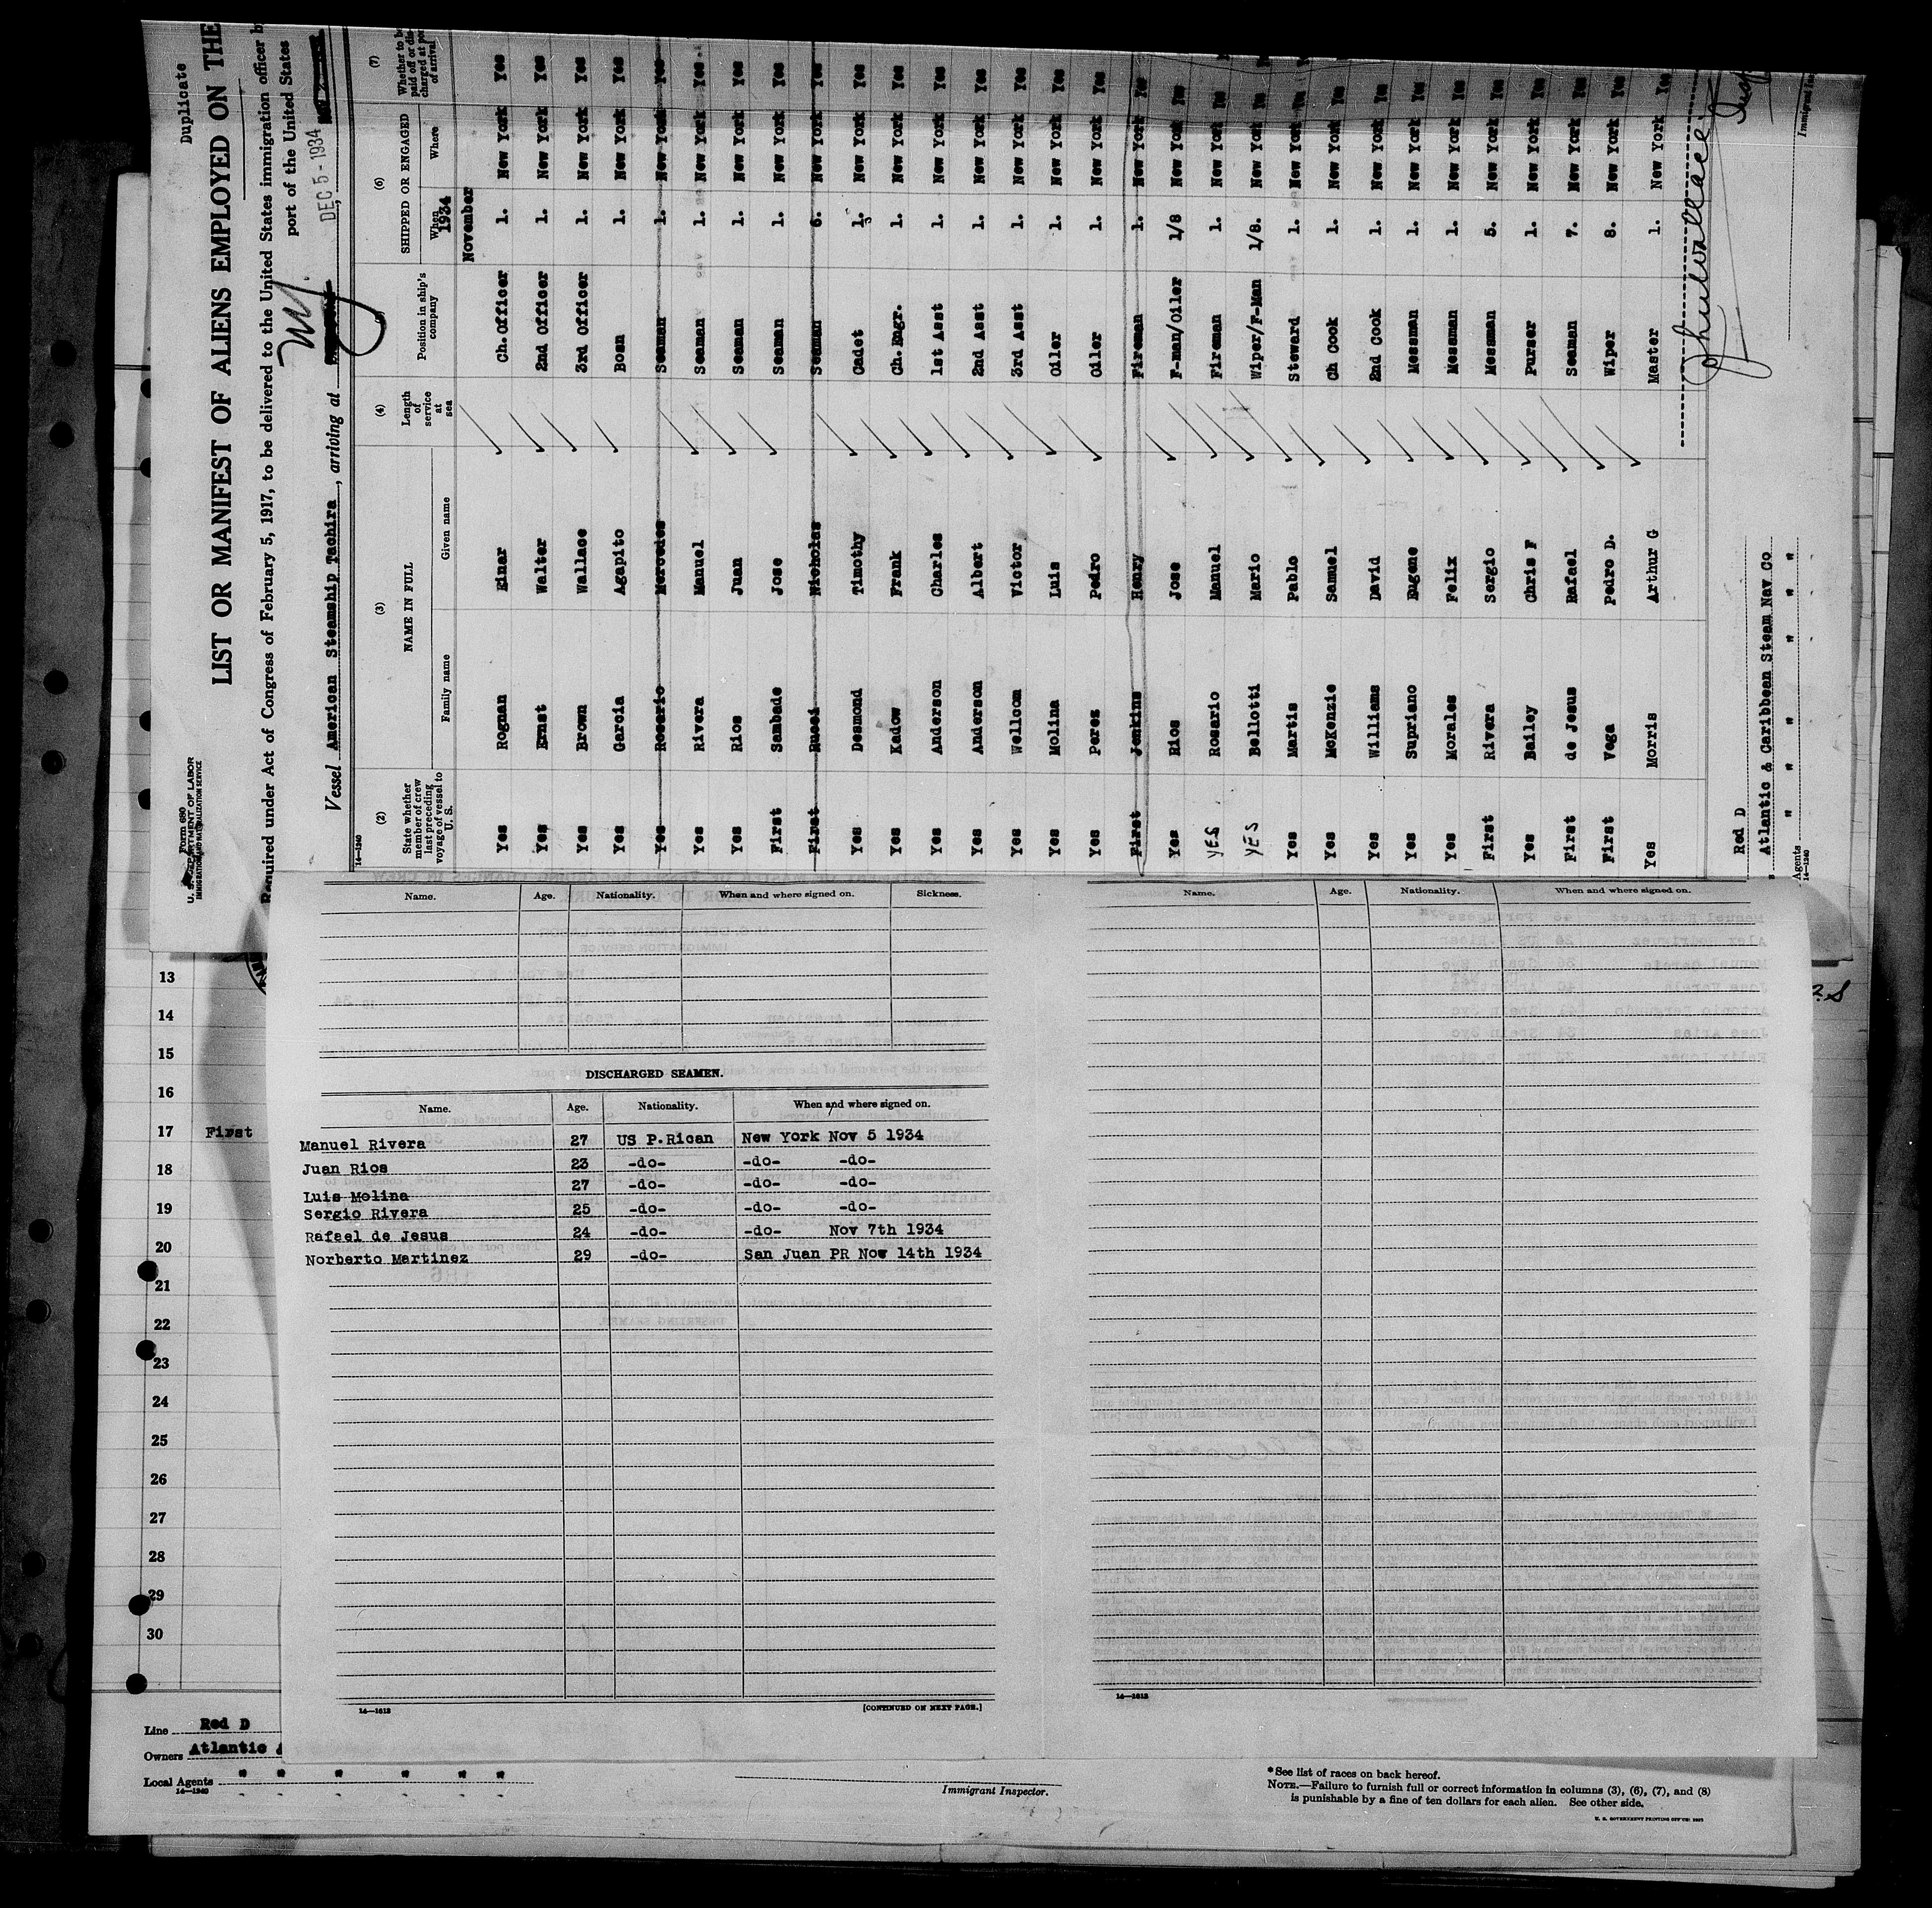 Duplicate
Form 680
U. S. DEPARTMENT OF LABOR
IMMIGRATION AND NATURALIZATION SERVICE
LIST OR MANIFEST OF ALIENS EMPLOYED ON THE
Required under Act of Congress of February 5, 1917, to be delivered to the United States immigration officer b
port of the United States
Vessel American Steamship Tachira, arriving at
DEC 5 - 1934
14—1240
(2) (3) (4) (6) (7)
State whether member of crew last preceding voyage of vessel to U. S.
NAME IN FULL
Family name Given name
Length of service at sea
Position in ship's company
SHIPPED OR ENGAGED
When Where
Whether to be paid off or discharged at port of arrival
1934
November
Yes Rognan Einar Ch. Officer 1. New York Yes
Yes Ernst Walter 2nd Officer 1. New York Yes
Yes Brown Wallace 3rd Officer 1. New York Yes
Yes Garcia Agapito Bosn 1. New York Yes
Yes Rosario Mercedes Seaman 1. New York Yes
Yes Rivera Manuel Seaman 1. New York Yes
Yes Rios Juan Seaman 1. New York Yes
First Sambade Jose Seaman 1. New York Yes
First Bucci Nicholas Seaman 6. New York Yes
Yes Desmond Timothy Cadet 1. New York Yes
Yes Kadow Frank Ch. Engr. 1. New York Yes
Yes Anderson Charles 1st Asst 1. New York Yes
Yes Anderson Albert 2nd Asst 1. New York Yes
Yes Wellcom Victor 3rd Asst 1. New York Yes
Yes Molina Luis Oiler 1. New York Yes
Yes Perez Pedro Oiler 1. New York Yes
First Jenkins Henry Fireman 1. New York Yes
Yes Rios Jose F-man/Oiler 1/8 New York Yes
YES Rosario Manuel Fireman 1. New York Yes
YES Bellotti Mario Wiper/F-Man 1/8. New York Yes
Yes Martis Pablo Steward 1. New York Yes
Yes McKenzie Samuel Ch Cook 1. New York Yes
Yes Williams David 2nd Cook 1. New York Yes
Yes Supriano Eugene Messman 1. New York Yes
Yes Morales Felix Messman 1. New York Yes
First Rivera Sergio Messman 5. New York Yes
Yes Bailey Chris F Purser 1. New York Yes
First de Jesus Rafael Seaman 7. New York Yes
First Vega Pedro D. Wiper 8. New York Yes
Yes Morris Arthur G Master 1. New York Yes
Red D
Atlantic & Caribbean Steam Nav Co
Agents " " " " "
14—1240
Name. Age. Nationality. When and where signed on. Sickness.
DISCHARGED SEAMEN.
Name. Age. Nationality. When and where signed on.
Manuel Rivera 27 US P.Rican New York Nov 5 1934
Juan Rios 23 -do- -do- -do-
Luis Molina 27 -do- -do- -do-
Sergio Rivera 25 -do- -do- -do-
Rafael de Jesus 24 -do- -do- Nov 7th 1934
Norberto Martinez 29 -do- San Juan PR Nov 14th 1934
14—1613
[CONTINUED ON NEXT PAGE.]
Name. Age. Nationality. When and where signed on.
14—1613
13
14
15
16
17 First
18
19
20
21
22
23
24
25
26
27
28
29
30
Line Red D
Owners Atlantic
Local Agents " " " " " "
14—1240
Immigrant Inspector.
*See list of races on back hereof.
NOTE.—Failure to furnish full or correct information in columns (3), (6), (7), and (8)
is punishable by a fine of ten dollars for each alien. See other side.